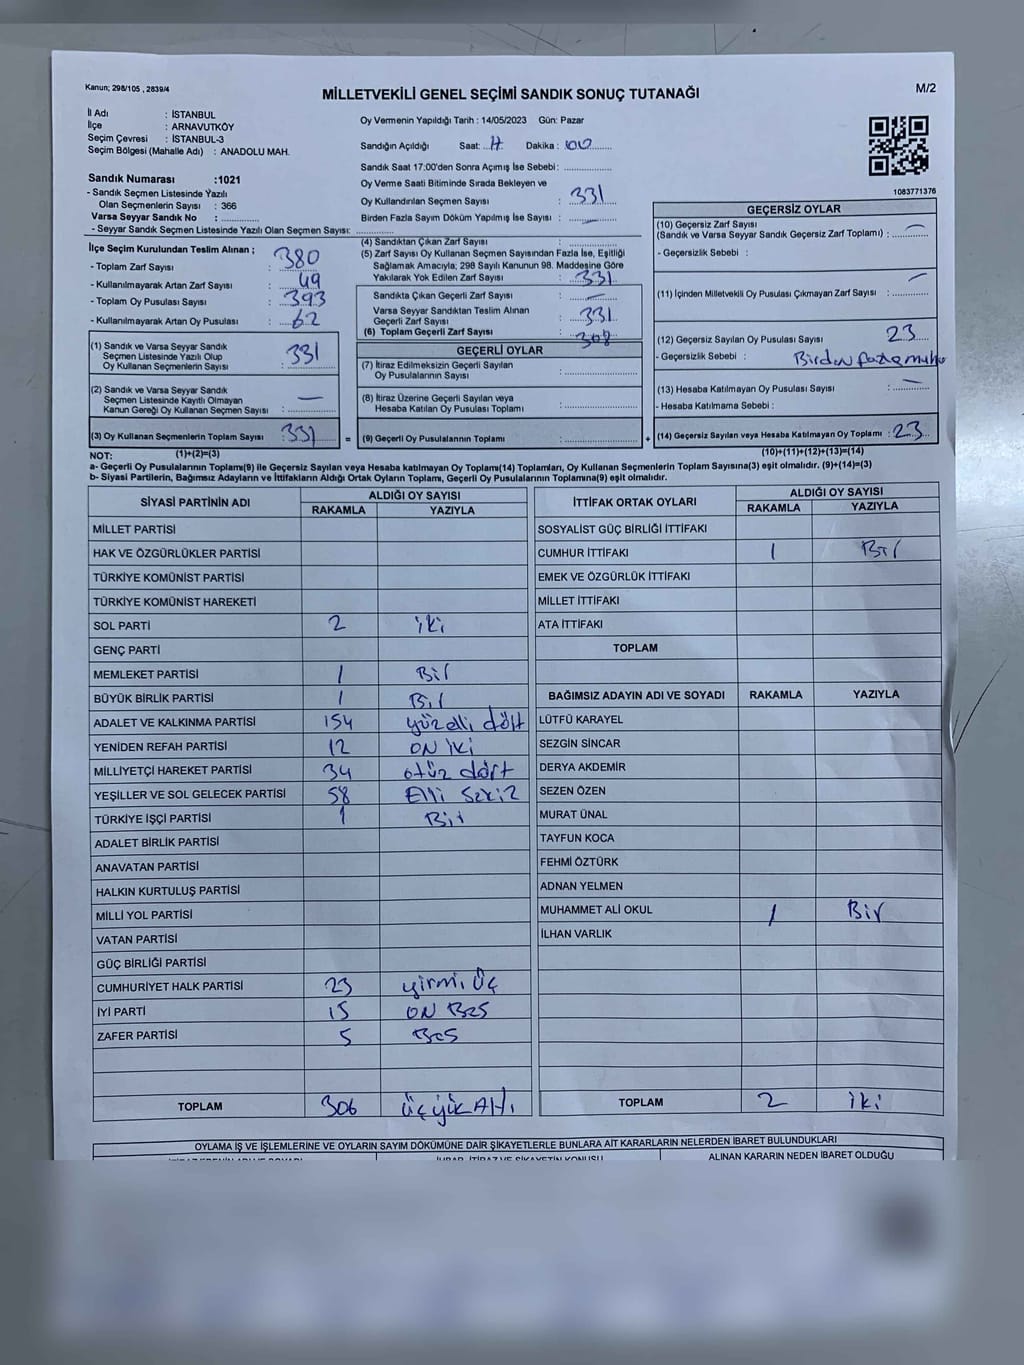 Kanun; 298/105 , 2839/4
MİLLETVEKİLİ GENEL SEÇİMİ SANDIK SONUÇ TUTANAĞI
M/2
İl Adı : İSTANBUL
İlçe : ARNAVUTKÖY
Seçim Çevresi : İSTANBUL-3
Seçim Bölgesi (Mahalle Adı) : ANADOLU MAH.
Sandık Numarası :1021
- Sandık Seçmen Listesinde Yazılı
Olan Seçmenlerin Sayısı : 366
Varsa Seyyar Sandık No :
- Seyyar Sandık Seçmen Listesinde Yazılı Olan Seçmen Sayısı:
Oy Vermenin Yapıldığı Tarih : 14/05/2023 Gün: Pazar
Sandığın Açıldığı Saat: Dakika: 00
Sandık Saat 17:00'den Sonra Açımış İse Sebebi:
Oy Verme Saati Bitiminde Sırada Bekleyen ve
Oy Kullandırılan Seçmen Sayısı : 331
Birden Fazla Sayım Döküm Yapılmış İse Sayısı : –
1083771376
İlçe Seçim Kurulundan Teslim Alınan ;
- Toplam Zarf Sayısı : 380
- Kullanılmayarak Artan Zarf Sayısı : 49
- Toplam Oy Pusulası Sayısı : 393
- Kullanılmayarak Artan Oy Pusulası : 62
(1) Sandık ve Varsa Seyyar Sandık
Seçmen Listesinde Yazılı Olup
Oy Kullanan Seçmenlerin Sayısı : 331
(2) Sandık ve Varsa Seyyar Sandık
Seçmen Listesinde Kayıtlı Olmayan
Kanun Gereği Oy Kullanan Seçmen Sayısı : –
(3) Oy Kullanan Seçmenlerin Toplam Sayısı : 331
(1)+(2)=(3)
(4) Sandıktan Çıkan Zarf Sayısı :
(5) Zarf Sayısı Oy Kullanan Seçmen Sayısından Fazla İse, Eşitliği
Sağlamak Amacıyla; 298 Sayılı Kanunun 98. Maddesine Göre
Yakılarak Yok Edilen Zarf Sayısı : 331
Sandıkta Çıkan Geçerli Zarf Sayısı : –
Varsa Seyyar Sandıktan Teslim Alınan
Geçerli Zarf Sayısı : 331
(6) Toplam Geçerli Zarf Sayısı : 308
GEÇERLİ OYLAR
(7) İtiraz Edilmeksizin Geçerli Sayılan
Oy Pusulalarının Sayısı :
(8) İtiraz Üzerine Geçerli Sayılan veya
Hesaba Katılan Oy Pusulası Toplamı :
= (9) Geçerli Oy Pusulalarının Toplamı :
GEÇERSİZ OYLAR
(10) Geçersiz Zarf Sayısı
(Sandık ve Varsa Seyyar Sandık Geçersiz Zarf Toplamı) : –
- Geçersizlik Sebebi :
(11) İçinden Milletvekili Oy Pusulası Çıkmayan Zarf Sayısı : –
(12) Geçersiz Sayılan Oy Pusulası Sayısı : 23
- Geçersizlik Sebebi : Birden fazla
(13) Hesaba Katılmayan Oy Pusulası Sayısı : –
- Hesaba Katılmama Sebebi :
+ (14) Geçersiz Sayılan veya Hesaba Katılmayan Oy Toplamı : 23
(10)+(11)+(12)+(13)=(14)
NOT:
a- Geçerli Oy Pusulalarının Toplamı(9) ile Geçersiz Sayılan veya Hesaba katılmayan Oy Toplam(14) Toplamları, Oy Kullanan Seçmenlerin Toplam Sayısına(3) eşit olmalıdır. (9)+(14)=(3)
b- Siyasi Partilerin, Bağımsız Adayların ve İttifakların Aldığı Ortak Oyların Toplamı, Geçerli Oy Pusulalarının Toplamına(9) eşit olmalıdır.
SİYASİ PARTİNİN ADI ALDIĞI OY SAYISI
RAKAMLA YAZIYLA
MİLLET PARTİSİ
HAK VE ÖZGÜRLÜKLER PARTİSİ
TÜRKİYE KOMÜNİST PARTİSİ
TÜRKİYE KOMÜNİST HAREKETİ
SOL PARTİ 2 iki
GENÇ PARTİ
MEMLEKET PARTİSİ 1 Bir
BÜYÜK BİRLİK PARTİSİ 1 Bir
ADALET VE KALKINMA PARTİSİ 154 yüzelli dört
YENİDEN REFAH PARTİSİ 12 ON iki
MİLLİYETÇİ HAREKET PARTİSİ 34 otuz dört
YEŞİLLER VE SOL GELECEK PARTİSİ 58 Elli Sekiz
TÜRKİYE İŞÇİ PARTİSİ 1 Bir
ADALET BİRLİK PARTİSİ
ANAVATAN PARTİSİ
HALKIN KURTULUŞ PARTİSİ
MİLLİ YOL PARTİSİ
VATAN PARTİSİ
GÜÇ BİRLİĞİ PARTİSİ
CUMHURİYET HALK PARTİSİ 23 yirmi üç
İYİ PARTİ 15 ON BeS
ZAFER PARTİSİ 5 BeS
TOPLAM 306 üçyüz Altı
İTTİFAK ORTAK OYLARI ALDIĞI OY SAYISI
RAKAMLA YAZIYLA
SOSYALİST GÜÇ BİRLİĞİ İTTİFAKI
CUMHUR İTTİFAKI 1 Bir
EMEK VE ÖZGÜRLÜK İTTİFAKI
MİLLET İTTİFAKI
ATA İTTİFAKI
TOPLAM
BAĞIMSIZ ADAYIN ADI VE SOYADI RAKAMLA YAZIYLA
LÜTFÜ KARAYEL
SEZGİN SİNCAR
DERYA AKDEMİR
SEZEN ÖZEN
MURAT ÜNAL
TAYFUN KOCA
FEHMİ ÖZTÜRK
ADNAN YELMEN
MUHAMMET ALİ OKUL 1 Bir
İLHAN VARLIK
TOPLAM 2 iki
OYLAMA İŞ VE İŞLEMLERİNE VE OYLARIN SAYIM DÖKÜMÜNE DAİR ŞİKAYETLERLE BUNLARA AİT KARARLARIN NELERDEN İBARET BULUNDUKLARI
ALINAN KARARIN NEDEN İBARET OLDUĞU